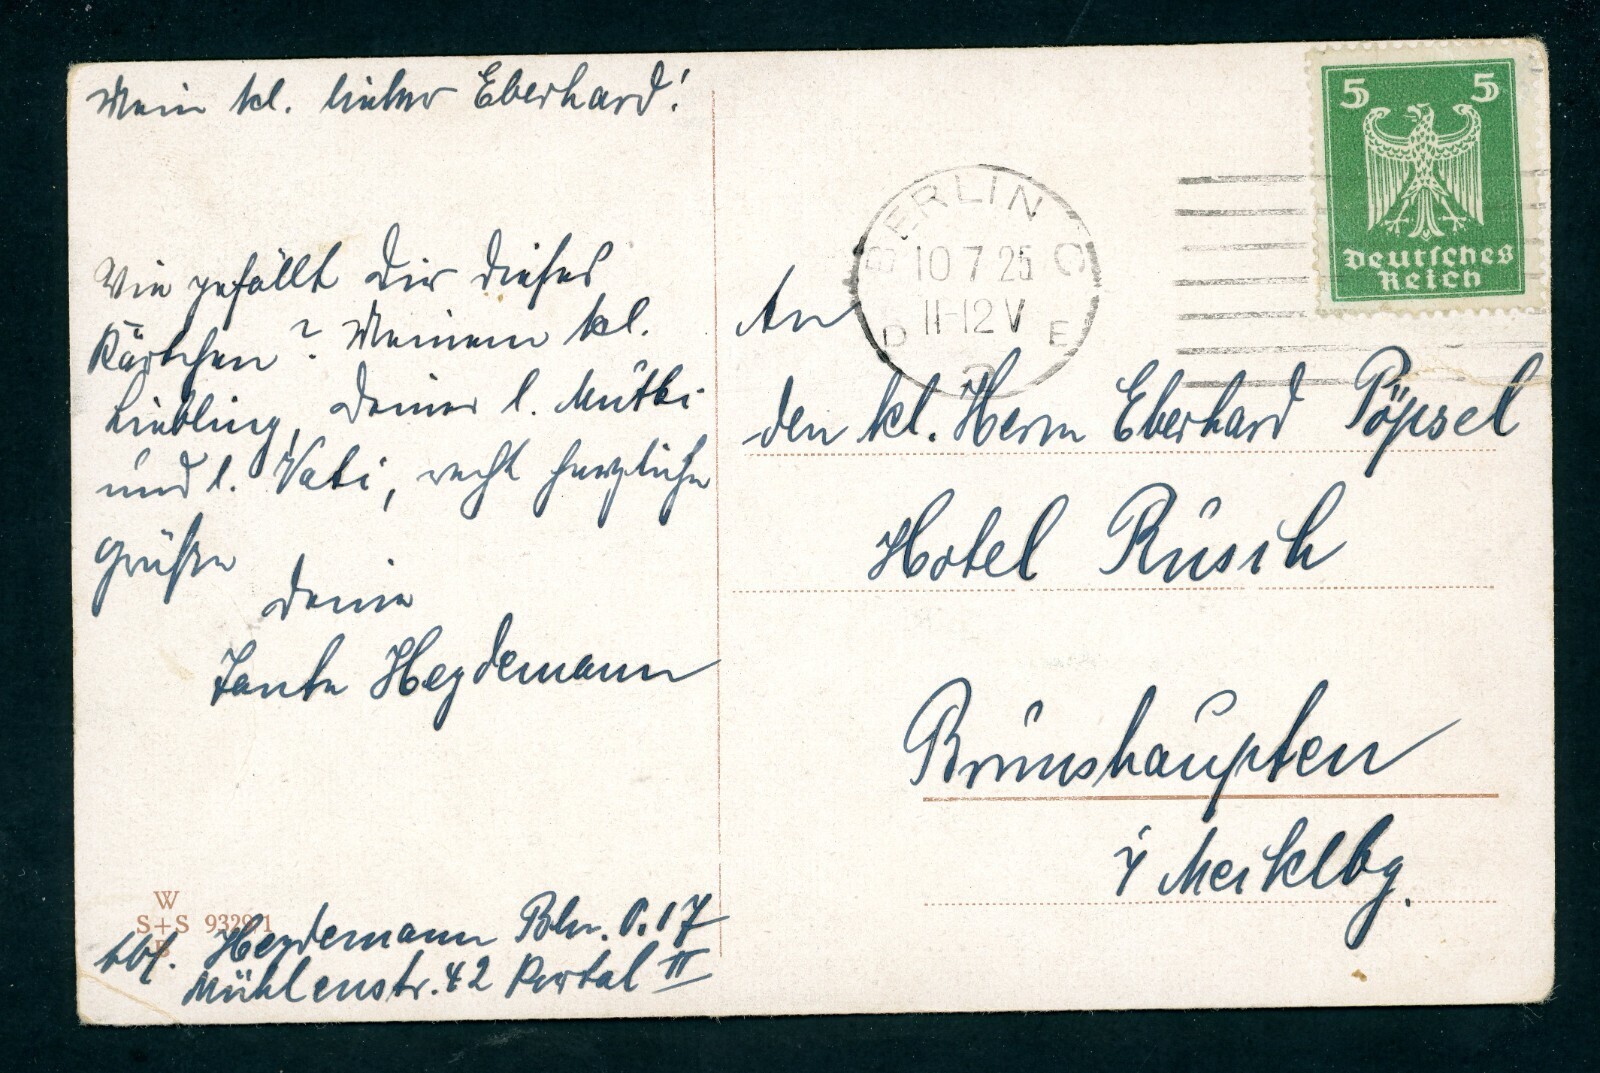 Mein kl. lieber Eberhard!
Wie gefällt Dir dieses
Kärtchen? Meinem kl.
Liebling, Deiner l. Mutti
und l. Vati, recht herzliche
Grüße
Deine
Tante Heydemann
W
S+S 9329/1
B
Abs. Heydemann Bln. O.17
Mühlenstr. 42 Portal II
5 5
Deutsches
Reich
BERLIN C
10 7 25
11-12 V
D E
2
An
den kl. Herrn Eberhard Pöpsel
Hotel Rusch
Brunshaupten
i/ Mecklbg.